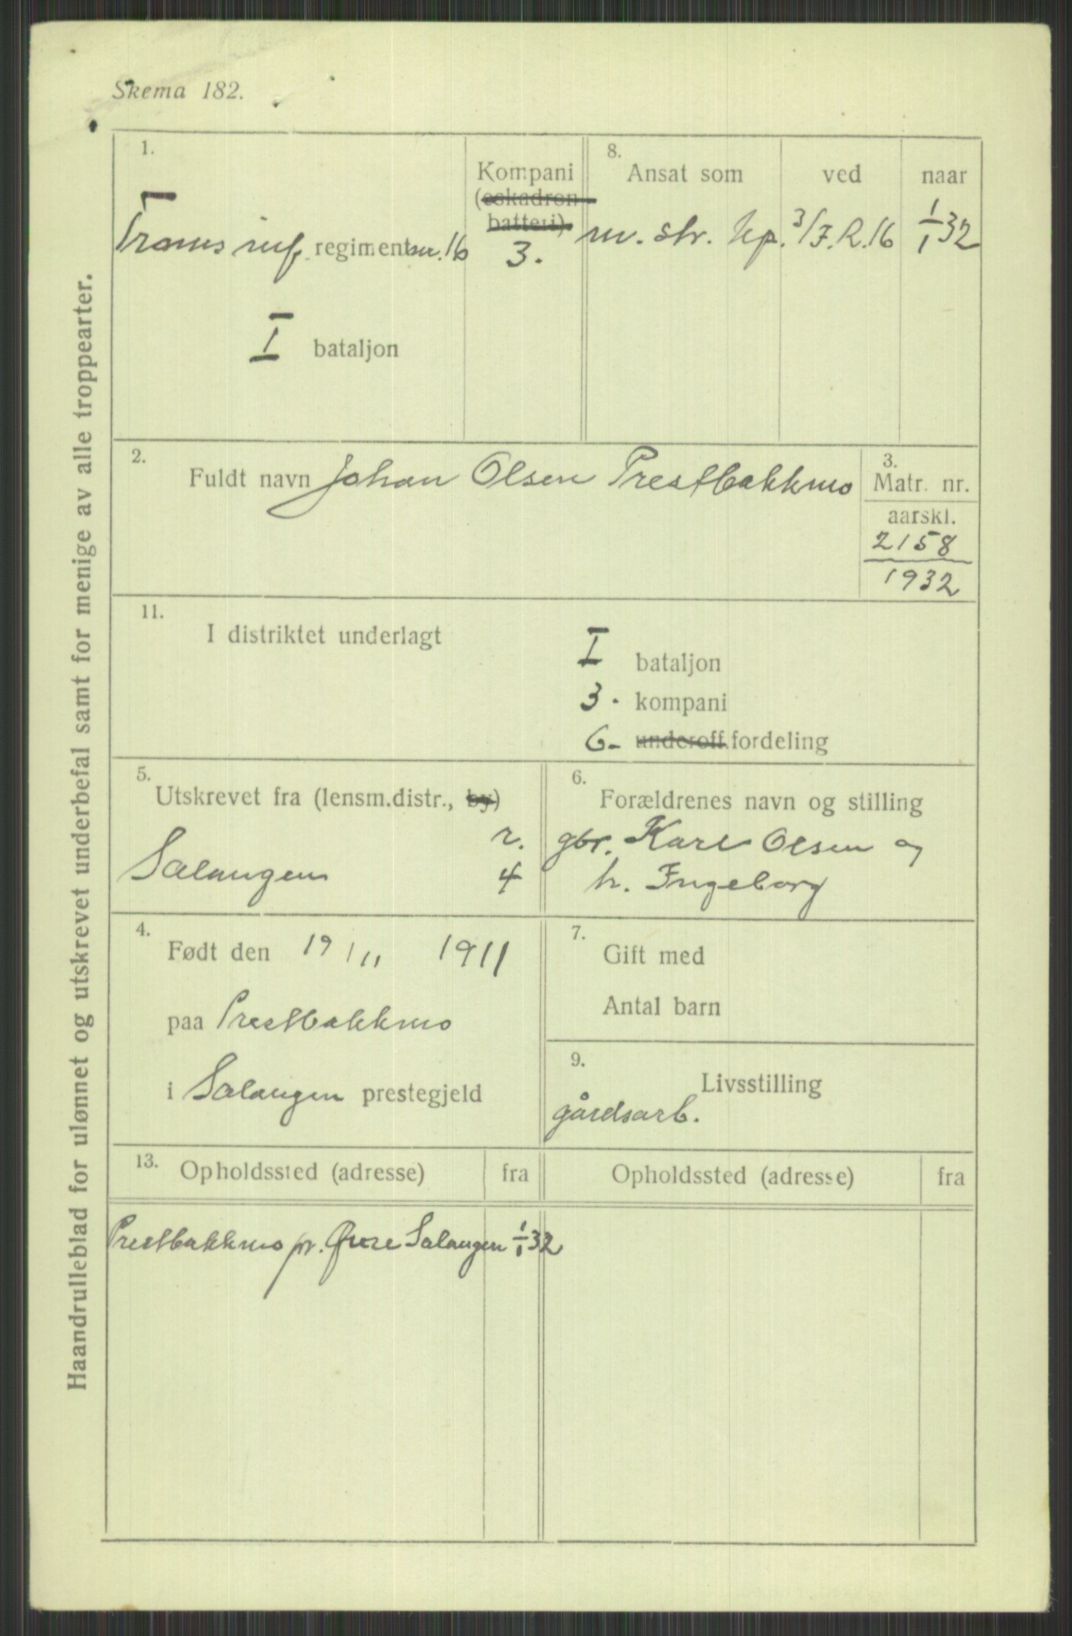 Skema 182.
Haandrulleblad for ulønnet og utskrevet underbefal samt for menige av alle troppearter.
1.
Troms inf. regiment nr. 16
I bataljon
Kompani
(eskadron
batteri)
3.
8.
Ansat som
ved
naar
m. str. kp. 3/I.R.16 1/1 32
2.
Fuldt navn Johan Olsen Prestbakkmo
3.
Matr. nr.
aarskl.
2158
1932
11.
I distriktet underlagt
I bataljon
3. kompani
6- underoff.fordeling
5.
Utskrevet fra (lensm.distr., by)
r.
Salangen 4
6.
Forældrenes navn og stilling
gbr. Karl Olsen og
h. Ingeborg
4.
Født den 19/11 1911
paa Prestbakkmo
i Salangen prestegjeld
7.
Gift med
Antal barn
9.
Livsstilling
gårdsarb.
13.
Opholdssted (adresse) fra
Opholdssted (adresse) fra
Prestbakkmo pr. Øvre Salangen 1/1 32